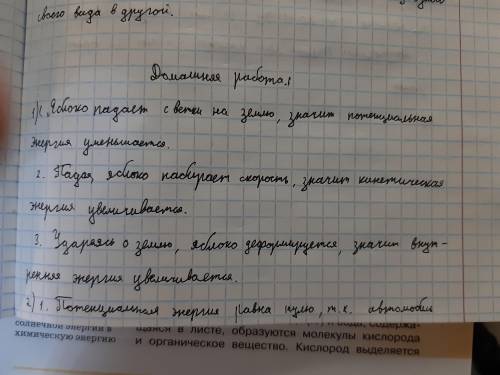 своего вида в другой.
Домашняя работа.
1)1. Яблоко падает с ветки на землю, значит потенциальная
энергия уменьшается.
2. Падая, яблоко набирает скорость, значит кинетическая
энергия увеличивается.
3. Ударяясь о землю, яблоко деформируется, значит внут-
ренняя энергия увеличивается.
2) 1. Потенциальная энергия равна нулю, т.к. автомобиль
солнечной энергии в
химическую энергию
щаяся в листе, образуются молекулы кислорода
и органическое вещество. Кислород выделяется